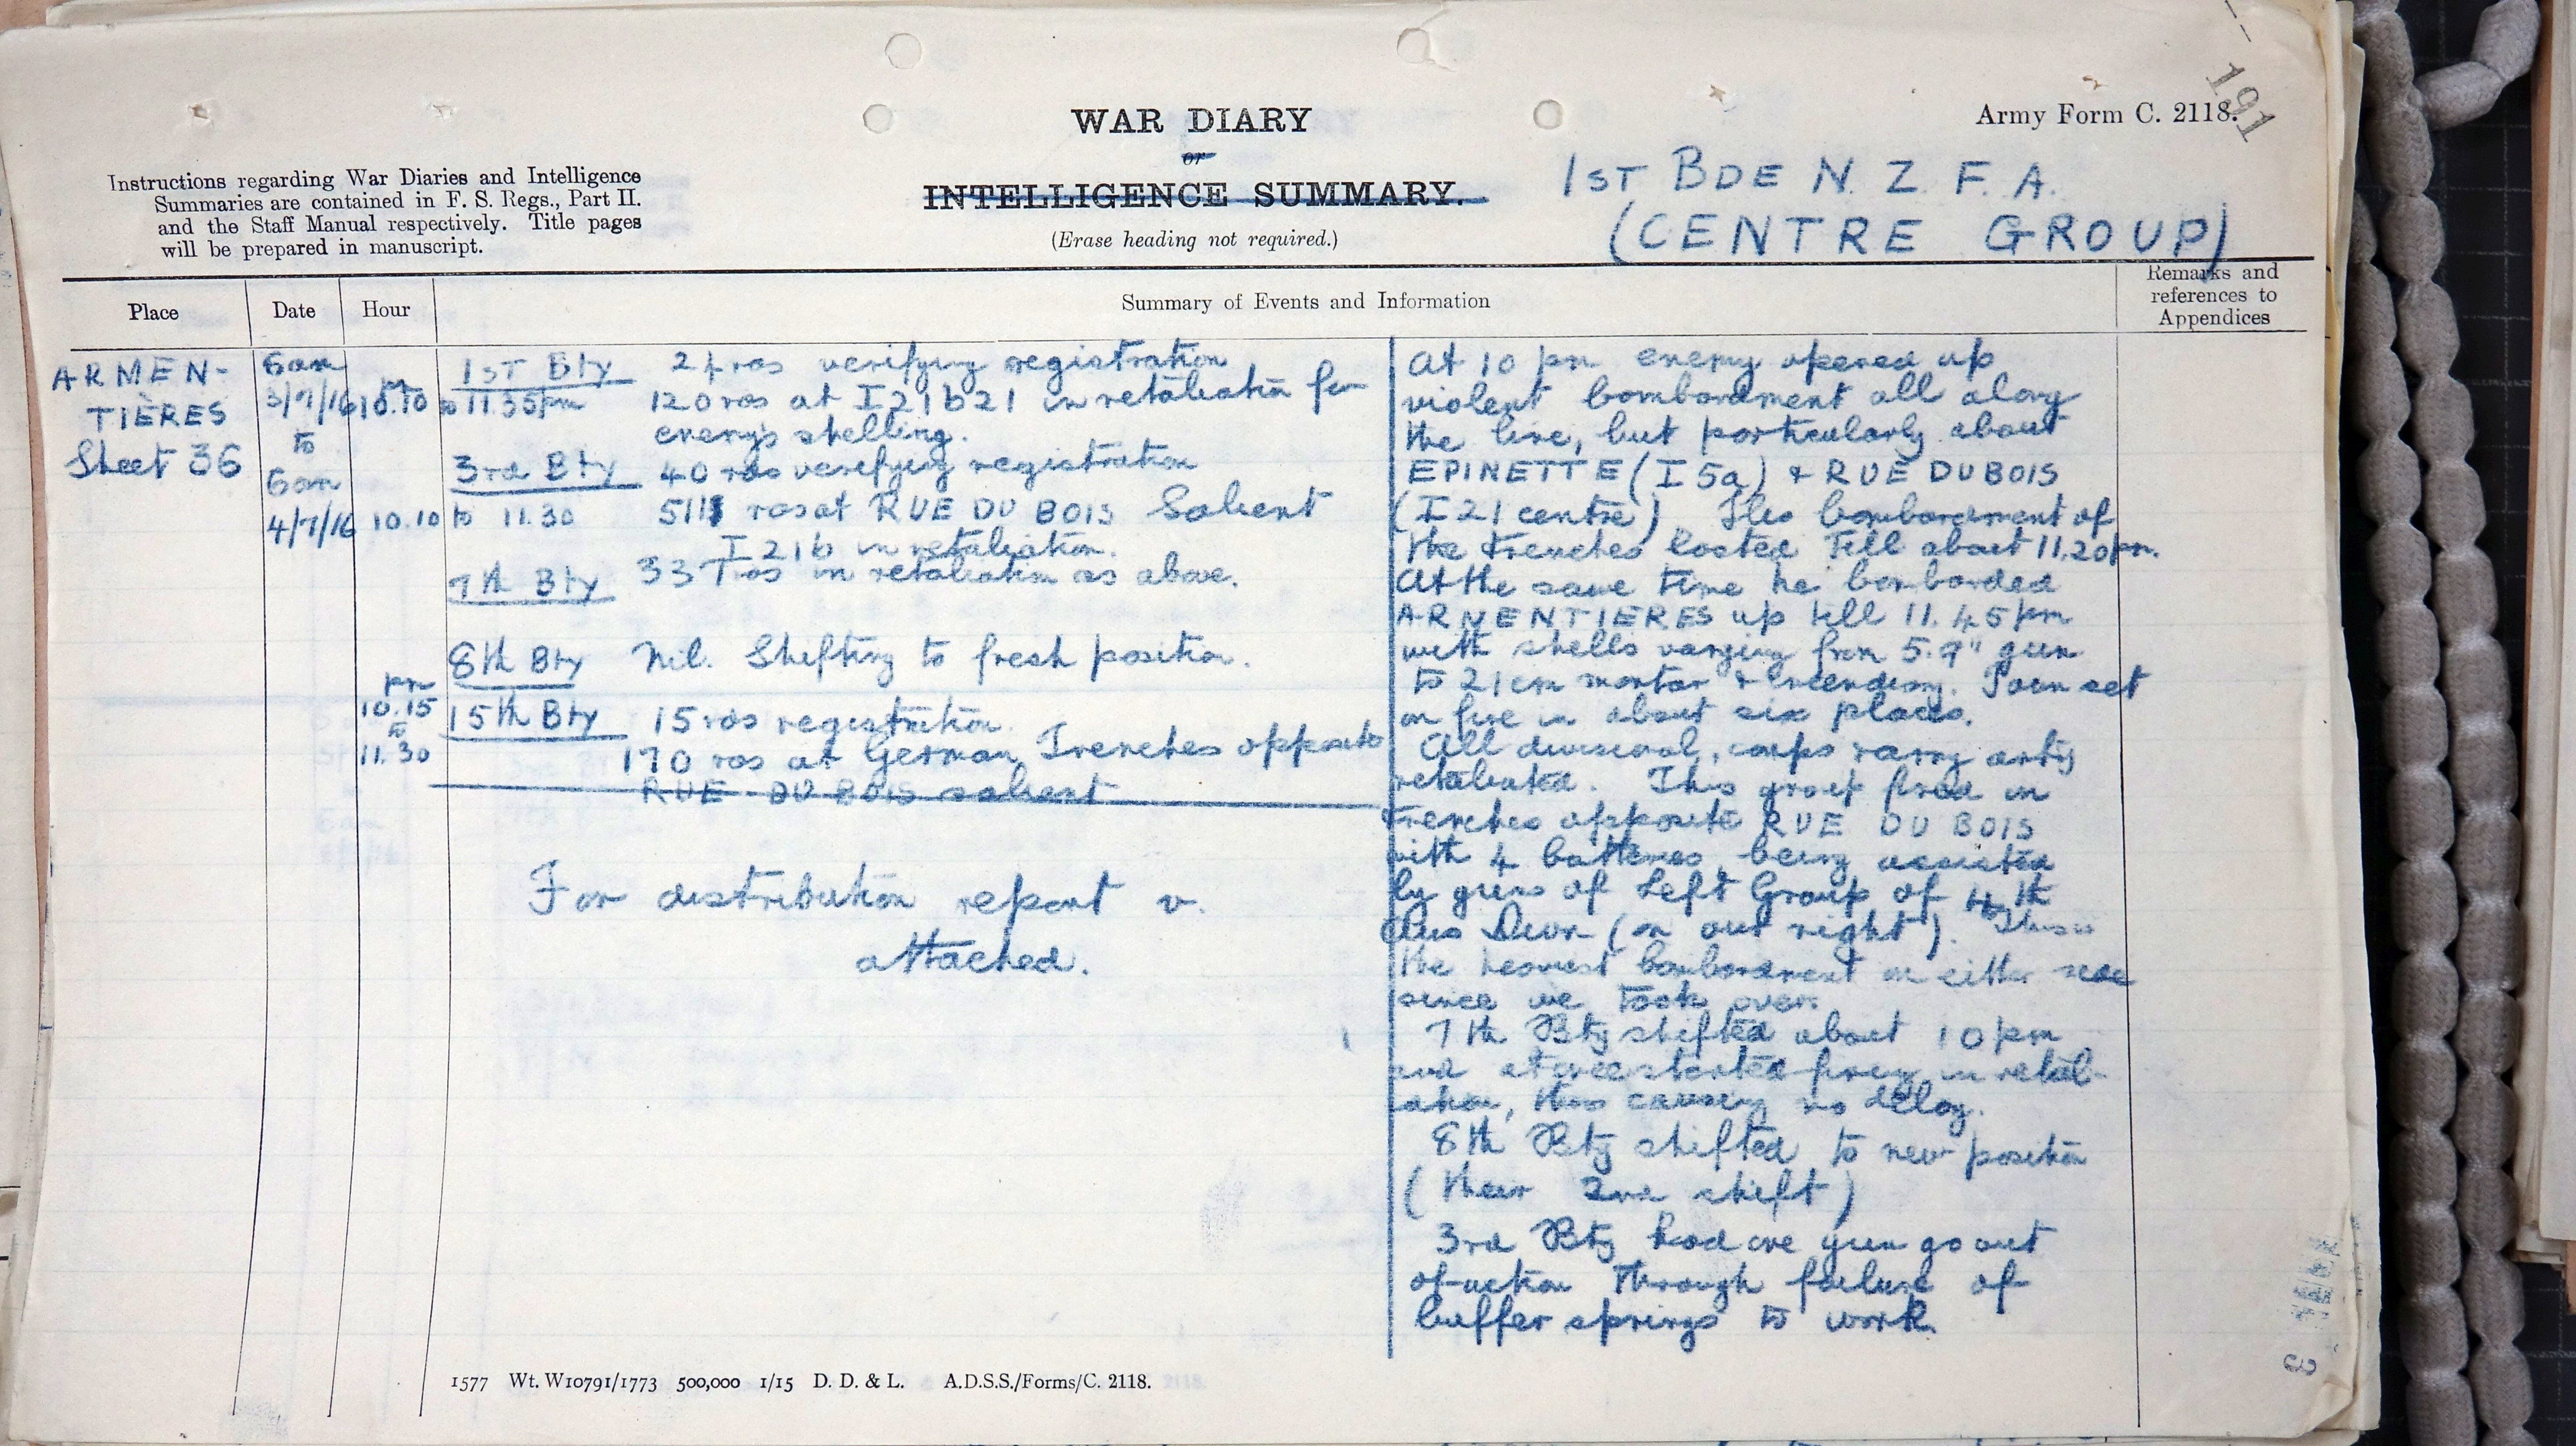 191
Army Form C. 2118.
WAR DIARY
or
INTELLIGENCE SUMMARY.
(Erase heading not required.)
Instructions regarding War Diaries and Intelligence
Summaries are contained in F. S. Regs., Part II.
and the Staff Manual respectively. Title pages
will be prepared in manuscript.
1ST BDE N. Z. F. A.
(CENTRE GROUP)
Place
Date
Hour
Summary of Events and Information
Remarks and
references to
Appendices
ARMEN-
TIÈRES
Sheet 36
6am
3/7/16
to
6am
4/7/16
pm
10.10 to 11.35pm
1ST Bty 24 rds verifying registration
120 rds at I21b21 in retaliation for
enemy's shelling.
3rd Bty 40 rds verifying registration
10.10 to 11.30 rds at RUE DU BOIS Salient
I21b in retaliation.
7th Bty 337 rds in retaliation as above.
8th Bty Nil. Shifting to fresh position.
pm
10.15
to
11.30
15th Bty 15 rds registration.
170 rds at German Trenches opposite
RUE DU BOIS salient
For distribution report v.
attached.
At 10 pm enemy opened up
violent bombardment all along
the line, but particularly about
EPINETTE (I 5a) & RUE DU BOIS
(I 21 centre). This bombardment of
the trenches lasted till about 11.20pm.
At the same time he bombarded
ARMENTIERES up till 11.45pm
with shells varying from 5.9" gun
to 21 cm mortar & incendiary. Town set
on fire in about six places.
All divisional, corps & army arty
retaliated. This group fired in
trenches opposite RUE DU BOIS
with 4 batteries, being assisted
by guns of Left Group of 4th
Aus Divn (on our right). This is
the heaviest bombardment on either side
since we took over.
7th Bty shifted about 10 pm
and at once started firing in retal-
iation, thus causing no delay.
8th Bty shifted to new position
(their 2nd shift)
3rd Bty had one gun go out
of action through failure of
buffer springs to work.
1577 Wt. W10791/1773 500,000 1/15 D. D. & L. A.D.S.S./Forms/C. 2118.